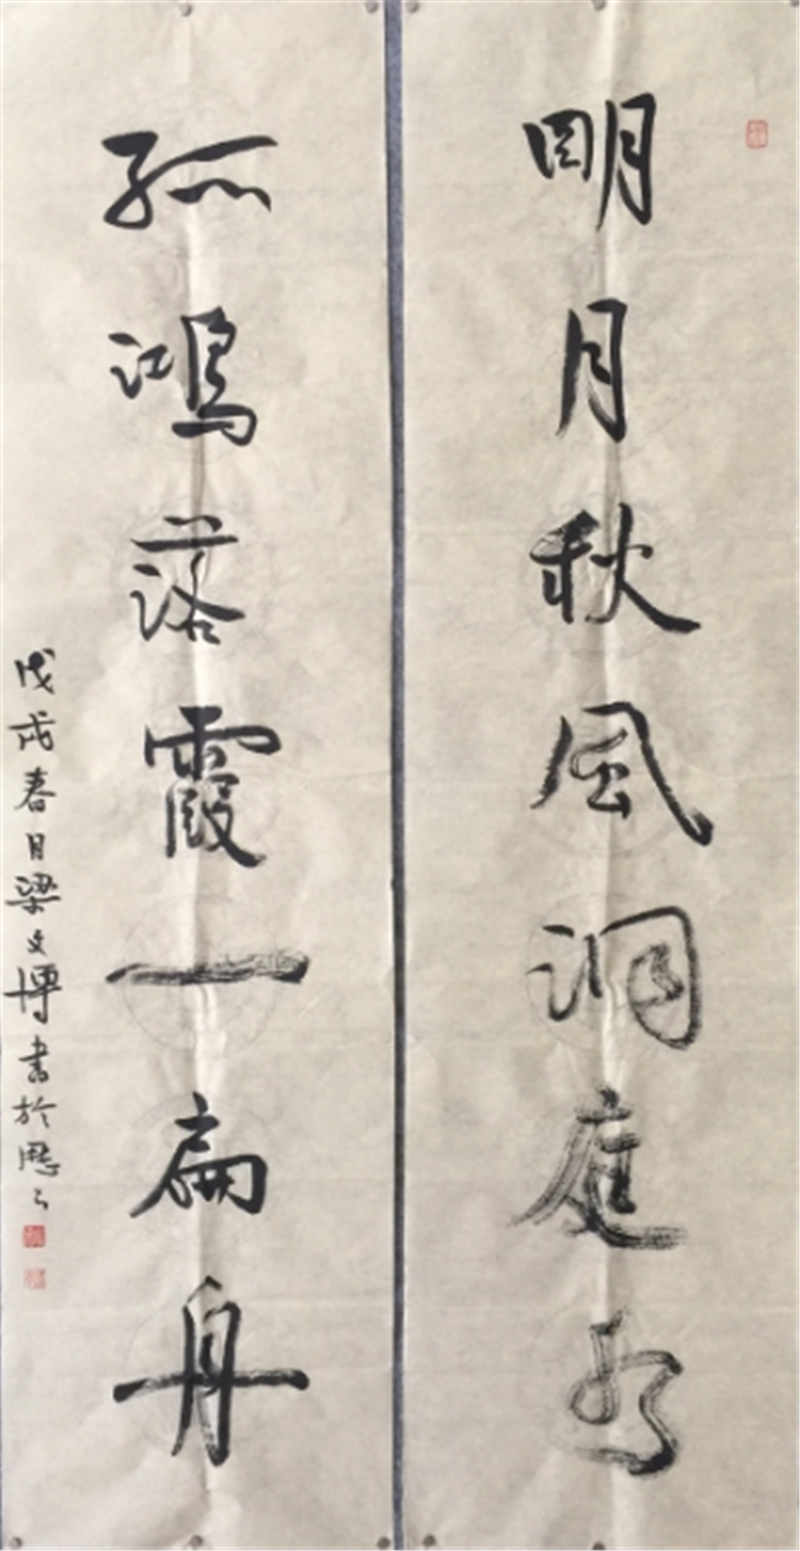 明月秋風洞庭水
孤鴻落霞一扁舟
戊戌春月梁文博書於